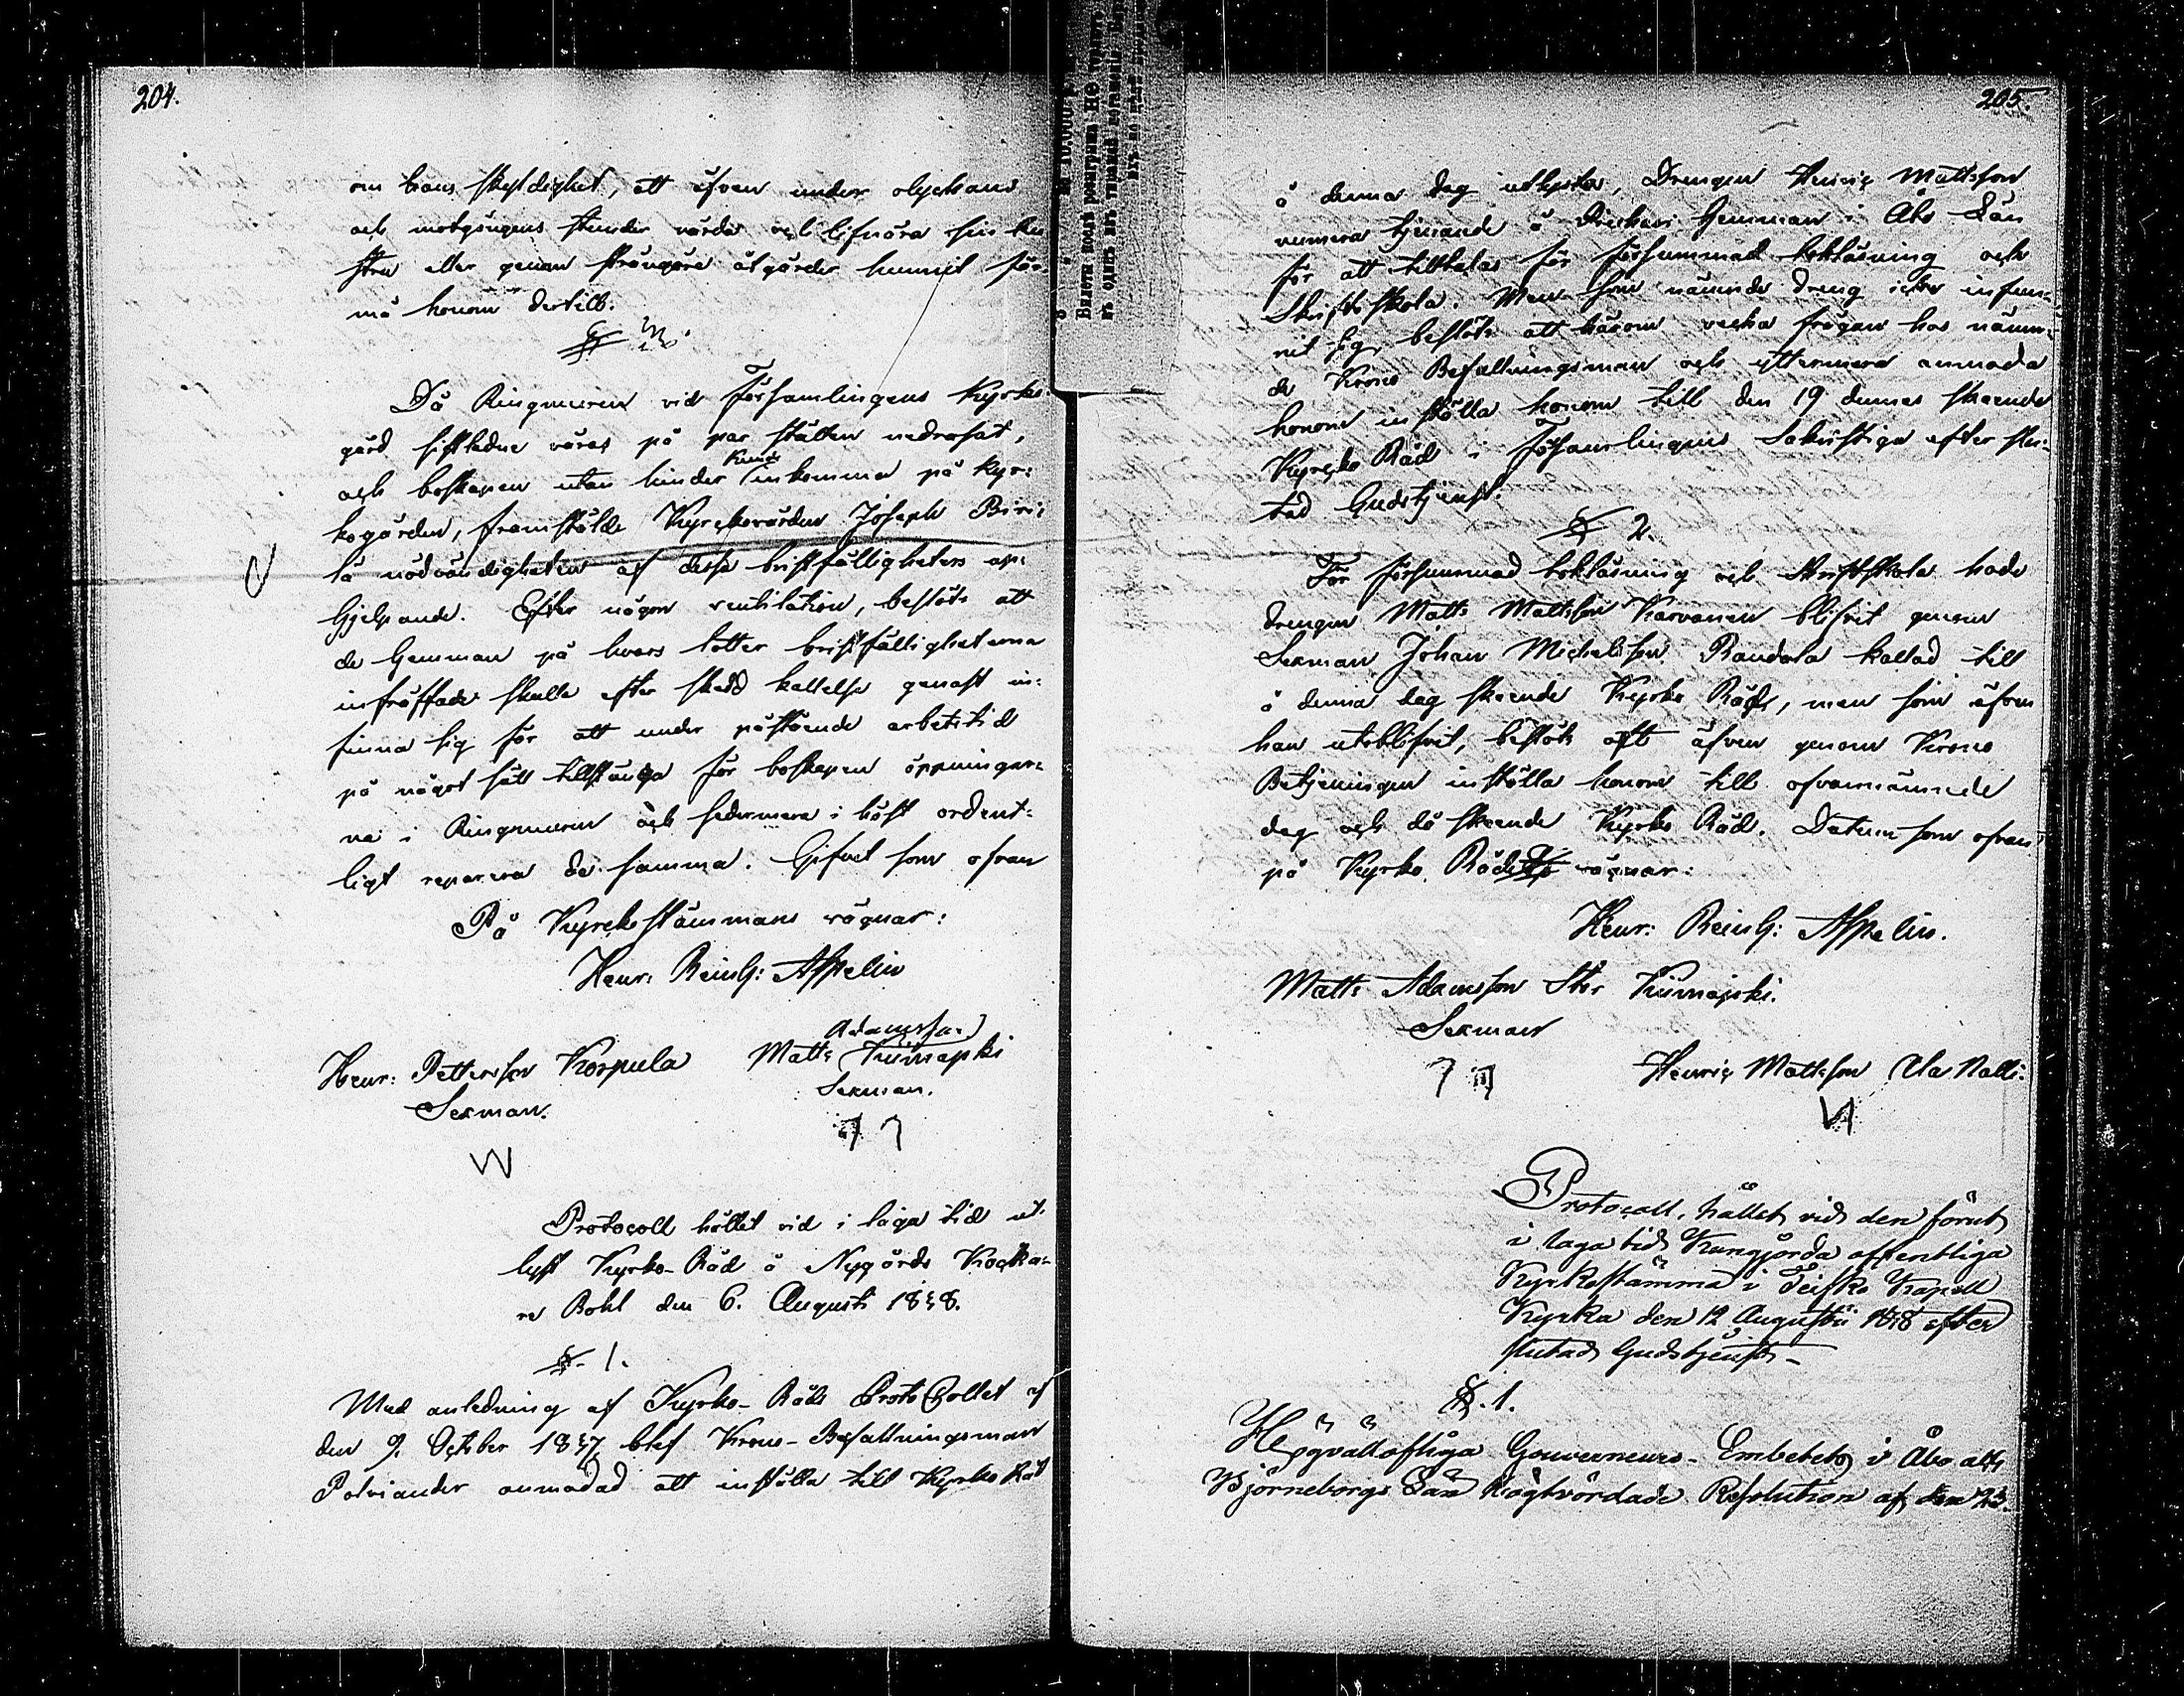 204.
om hans skyldighet, att äfven under olyckans
och motgångens stunder vårda och lifnära sin hu
stru eller genom strängare åtgärder kunnit för
må honom dertill.
§ 3.
Då Ringmuren vid Församlingens Kyrko-
gård sistledne våras på par ställen nedrasat,
och boskapen utan hinder kunde inkomma på kyr-
kogården, framstälde Kyrckovärden Joseph Biri-
lä nödvändigheten af dessa bristfälligheters ap-
hjelpande. Efter någon ventilation, beslöts att
de Hemman på hvars lotter bristfälligheterna
inträffade skulle efter skedd kallelse genast in-
finna sig för att under påstående arbetstid
på något sätt tillstänga för boskapen öppningar-
na i Ringmuren och sedermera i höst ordent-
ligt reparera de samma. Gifvet som ofvan
På Kyrckostämmans vägnar:
Henr: Reinh: Aspelin
Henr: Pettersson Korpula
Sexman.
Adamsson
Matts Kuimajoki
Sexman.
Protocoll hållet vid i laga tid ut-
lyst Kyrko-Råd å Nygårds
Bohl den 6. Augusti 1838.
§. 1.
Med anledning af Kyrko-Råds Protocollet af
den 9. October 1837 blef Krono-Befallningsman
Polviander anmodad att inställa till Kyrko Råd
205.
å denna dag utlyster, Drengen Henric Mattsson
numera tjenande å Hemman i Åbo Län
för att tilltalas för försummad bokläsning och
Skriftskola. Men som nämnde dreng icke infun-
nit sig, beslöts att häröm väcka frågan hos nämn-
de Krono Befallningsman och yttermera anmoda
honom inställa honom till den 19 dennes skeende
Kyrcko Råd i Församlingens Sakristiga efter slu-
tad Gudstjenst.
§ 2.
För försummad bokläsning och Skriftskola hade
drengen Matts Mattsson Karvanen blifvit genom
Sexman Johan Michelsson Raudala kallad till
å denna dag skeende Kyrko Råd, men som äfven
han uteblifvit, beslöts att äfven genom Krono
Betjeningen inställa honom till ofvannämnde
dag och då skeende Kyrko Råd. Datum som ofvan
på Kyrko Rådets vägnar:
Henr: Reinh: Aspelin.
Matts Adamsson Stor Kuimajoki.
Sexman
Henric Mattsson Ala Nalli.
Protocoll, hållet vid den förut
i laga tid Kungjorda offentliga
Kyrkostämma i Teisko Kapell
Kyrka den 12 Augustii 1838 efter
slutad Gudstjenst.
§. 1.
Högvällofliga Gouverneurs-Embetets i Åbo och
Björneborgs Län Högtvördade Resolution af den 23.